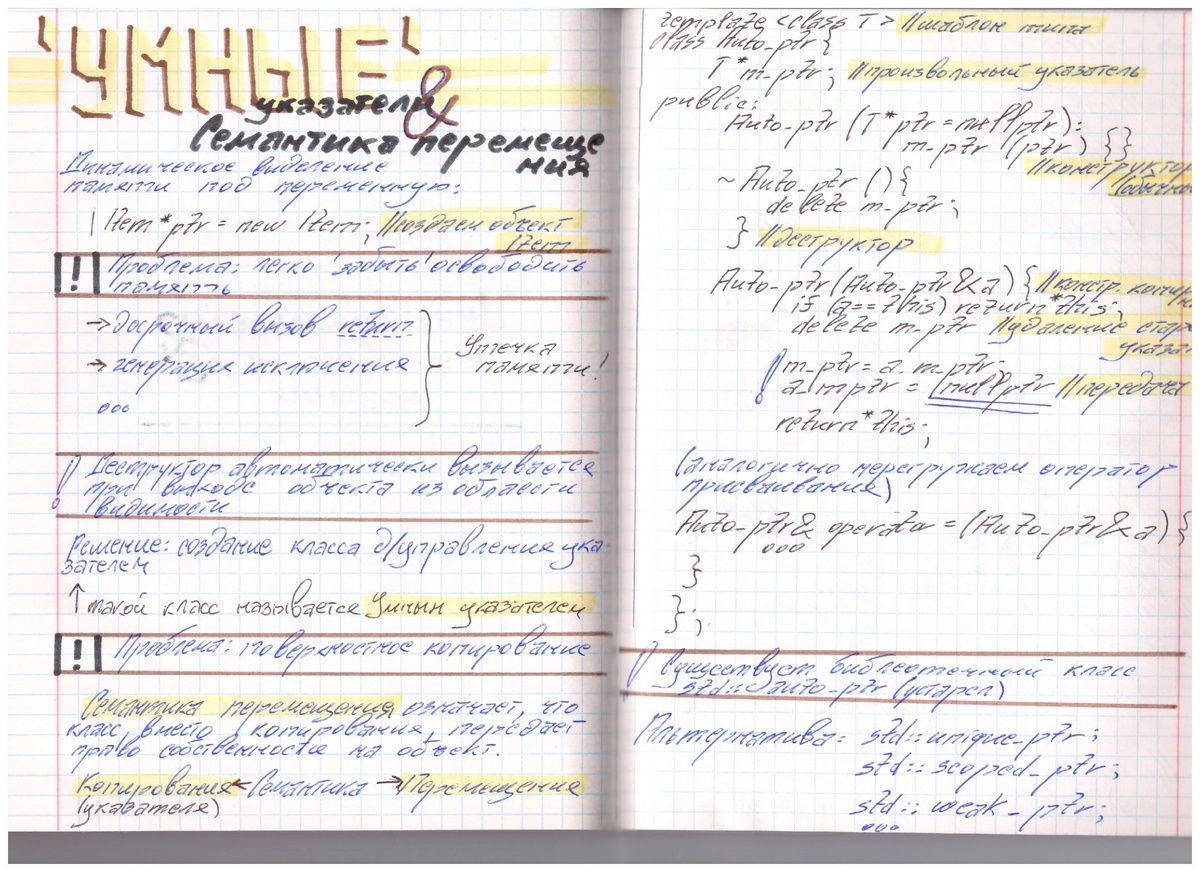 'УМНЫЕ'
указатели &
Семантика перемеще
ния
Динамическое выделение
памяти под переменную:
Item*ptr = new Item; //создаем объект
Item
! Проблема: легко 'забыть' освободить
память
→ досрочный вызов return
→ генерация исключения
ооо
Утечка
памяти!
! Деструктор автоматически вызывается
при выходе объекта из области
видимости
Решение: создание класса д/управления ука-
зателем
↑ такой класс называется Умным указателем
! Проблема: поверхностное копирование
Семантика перемещения означает, что
класс, вместо копирования, передает
право собственности на объект.
Копирования ← Семантика → Перемещения
(указателя)
template <class T> //шаблон типа
class Auto_ptr {
T*m_ptr; //произвольный указатель
public:
Auto_ptr (T*ptr = nullptr):
m_ptr (ptr) {}
//конструктор
~Auto_ptr () {
delete m_ptr;
} //деструктор
Auto_ptr (Auto_ptr & a) { //констр. копир
if (a==this) return*this;
delete m_ptr //удаление стар
указат
! m_ptr = a. m_ptr;
a_mptr = nullptr //передача
return*this;
(аналогично перегружаем оператор
присваивания)
Auto_ptr& operator = (Auto_ptr & a) {
ооо
}
};
! Существует библеотечный класс
std::auto_ptr (устарел)
Альтернатива: std::unique_ptr;
std::scoped_ptr;
std::weak_ptr;
ооо